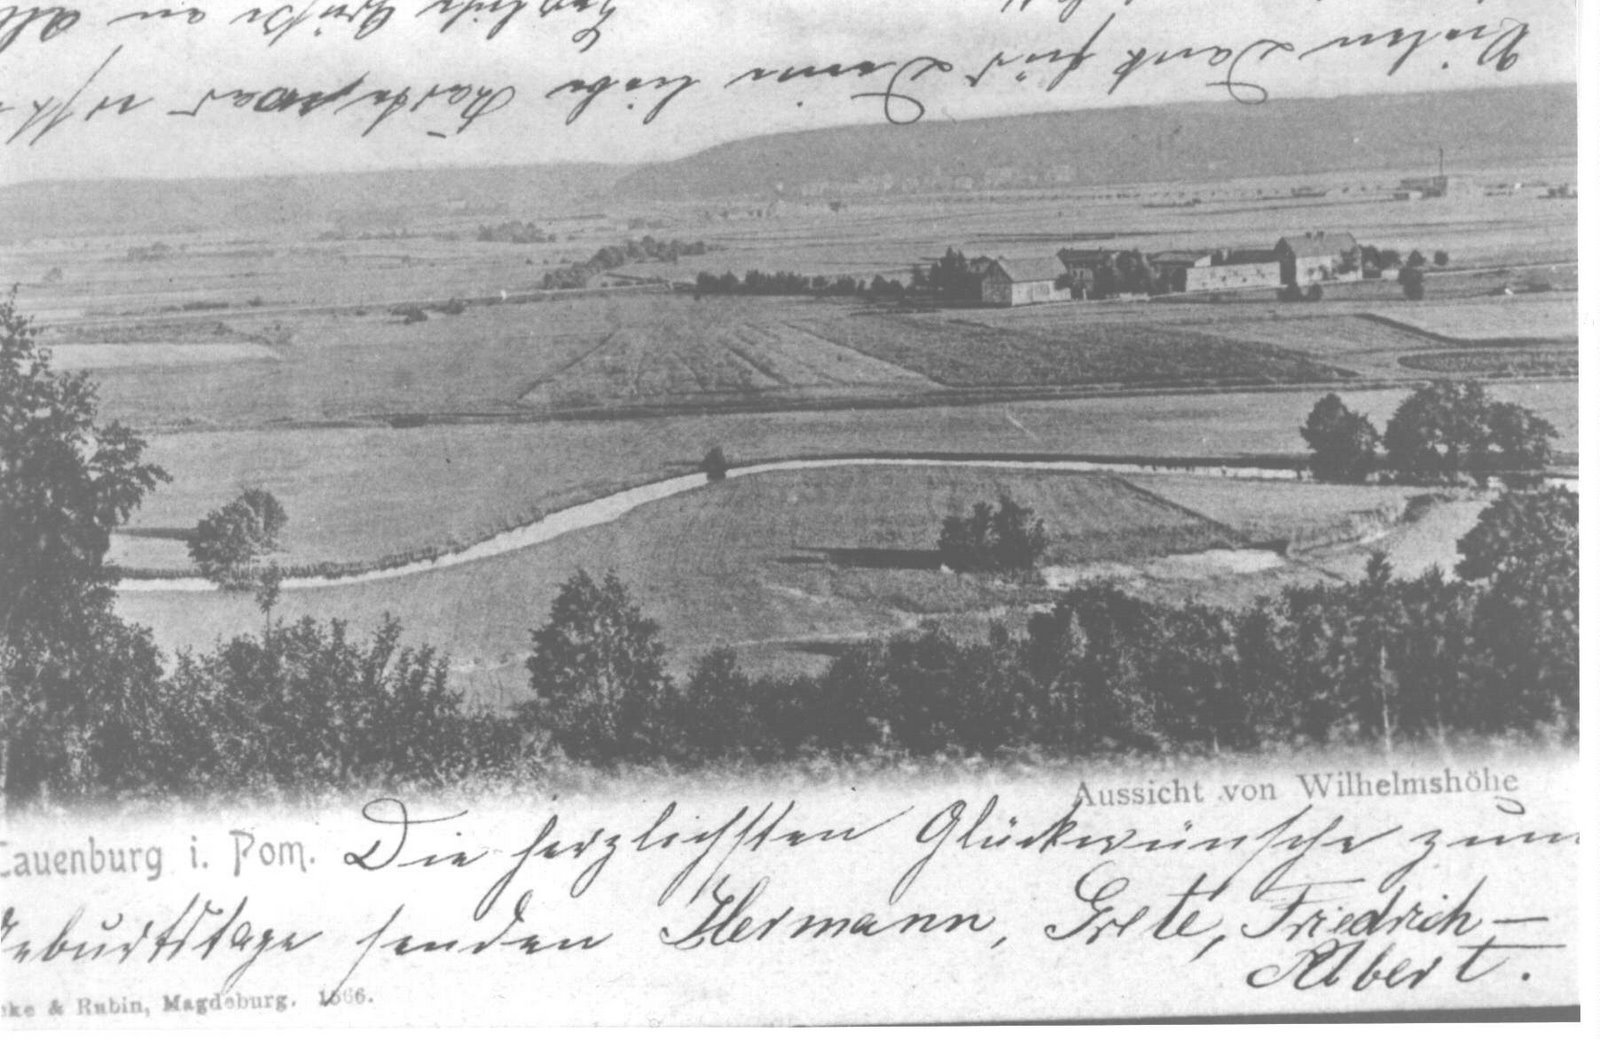 Vielen Dank für Deine liebe Karte, war
Herzliche Grüße an
Aussicht von Wilhelmshöhe
Lauenburg i. Pom. Die herzlichsten Glückwünsche zum
Geburtstage senden Hermann, Grete, Friedrich-
Albert.
& Rubin, Magdeburg. 1566.